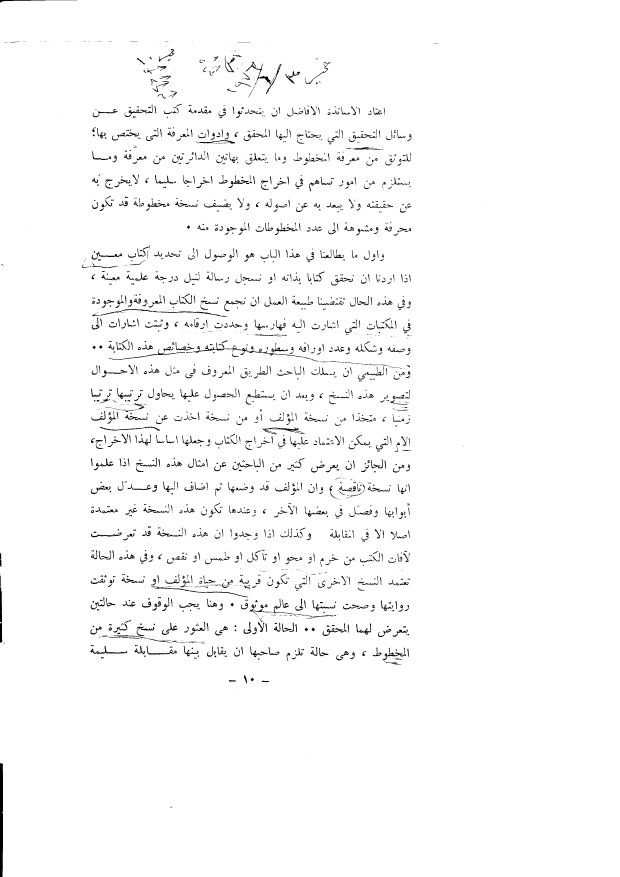 اعتاد الاساتذة الافاضل ان يتحدثوا في مقدمة كتب التحقيق عــن
وسائل التحقيق التي يحتاج اليها المحقق ، وادوات المعرفة التى يختص بها؛
للتوثق من معرفة المخطوط وما يتعلق بهاتين الدائرتين من معرفة ومــا
يستلزم من امور تساهم في اخراج المخطوط اخراجا سليما ، لايخرج به
عن حقيقته ولا يبعد به عن اصوله ، ولا يضيف نسخة مخطوطة قد تكون
محرفة ومشوهة الى عدد المخطوطات الموجودة منه .
واول ما يطالعنا في هذا الباب هو الوصول الى تحديد كتاب معــين
اذا اردنا ان نحقق كتابا بذاته او نسجل رسالة لنيل درجة علمية معينة ،
وفي هذه الحال تقتضينا طبيعة العمل ان نجمع نسخ الكتاب المعروفةوالموجودة
في المكتبات التي اشارت اليه فهارسها وحددت ارقامه ، وثبتت اشارات الى
وصفه وشكله وعدد اوراقه وسطوره ونوع كتابته وخصائص هذه الكتابة ..
ومن الطبيعي ان يسلك الباحث الطريق المعروف فى مثل هذه الاحــوال
لتصوير هذه النسخ ، وبعد ان يستطيع الحصول عليها يحاول ترتيبها ترتيبا
زمنيا ، متخذا من نسخة المؤلف أو من نسخة اخذت عن نسخة المؤلف
الام التي يمكن الاعتماد عليها في اخراج الكتاب وجعلها اساسا لهذا الاخراج،
ومن الجائز ان يعرض كثير من الباحثين عن امثال هذه النسخ اذا علموا
انها نسخة (ناقصة) ، وان المؤلف قد وضعها ثم اضاف اليها وعــدل بعض
أبوابها وفصل في بعضها الآخر ، وعندها تكون هذه النسخة غير معتمدة
اصلا الا في المقابلة وكذلك اذا وجدوا ان هذه النسخة قد تعرضــت
لآفات الكتب من خرم او محو او تآكل او طمس او نقص ، وفي هذه الحالة
تعتمد النسخ الاخرى التي تكون قريبة من حياة المؤلف او نسخة توثقت
روايتها وصحت نسبتها الى عالم موثوق . وهنا يجب الوقوف عند حالتين
يتعرض لهما المحقق .. الحالة الأولى : هى العثور على نسخ كثيرة من
المخطوط ، وهى حالة تلزم صاحبها ان يقابل بينها مقــابلة ســليمة
– ١٠ –